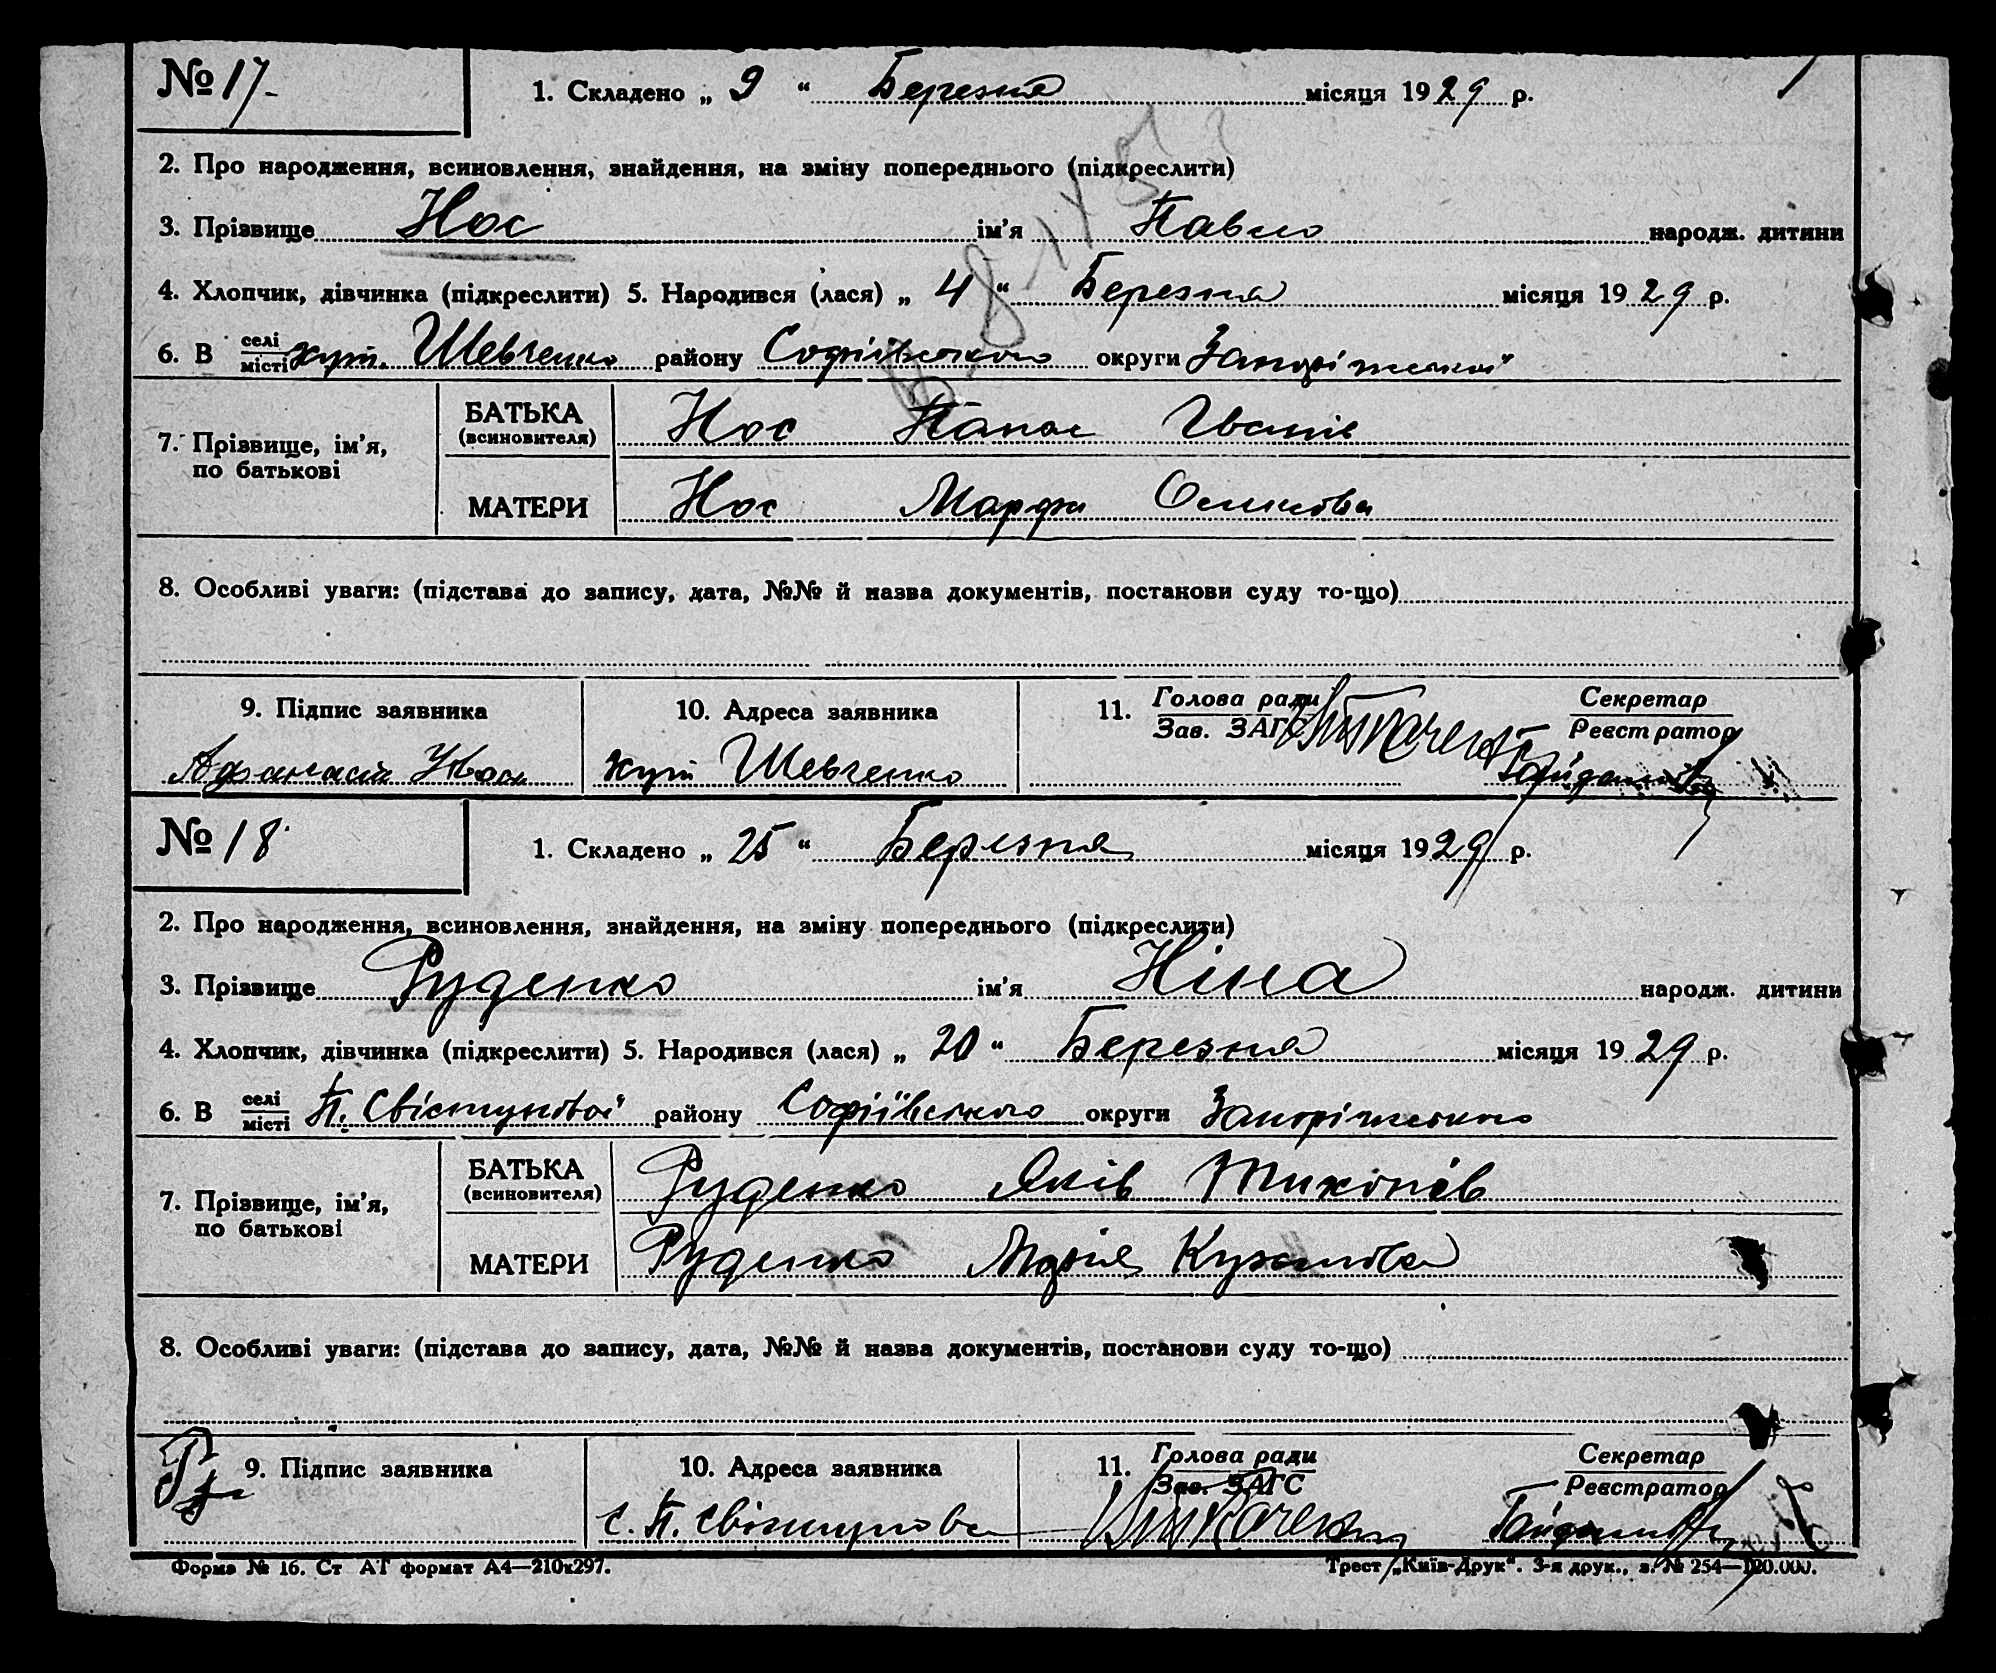 № 17-
1. Складено „ 9 “ Березня місяця 1929 р.
2. Про народження, всиновлення, знайдення, на зміну попереднього (підкреслити)
3. Прізвище Нос ім’я Павло народж. дитини
4. Хлопчик, дівчинка (підкреслити) 5. Народився (лася) „ 4 “ Березня місяця 1929 р.
6. В селі/місті хут. Шевченко району Софіївського округи Запоріжської
7. Прізвище, ім’я, по батькові
БАТЬКА (всиновителя) Нос Панас Іванів
МАТЕРИ Нос Марфа
8. Особливі уваги: (підстава до запису, дата, №№ й назва документів, постанови суду то-що)
9. Підпис заявника 10. Адреса заявника 11. Голова ради Секретар
Зав. ЗАГС Реєстратор
Афанасій Нос хут Шевченко
№ 18
1. Складено „ 25 “ Березня місяця 1929 р.
2. Про народження, всиновлення, знайдення, на зміну попереднього (підкреслити)
3. Прізвище Руденко ім’я Ніна народж. дитини
4. Хлопчик, дівчинка (підкреслити) 5. Народився (лася) „ 20 “ Березня місяця 1929 р.
6. В селі/місті П. Свістунової району Софіївського округи Запоріжського
7. Прізвище, ім’я, по батькові
БАТЬКА (всиновителя) Руденко Яків Тихонів
МАТЕРИ Руденко Марія Кузьмова
8. Особливі уваги: (підстава до запису, дата, №№ й назва документів, постанови суду то-що)
9. Підпис заявника 10. Адреса заявника 11. Голова ради Секретар
Зав. ЗАГС Реєстратор
с. П. Свістунова
Форма № 16. Ст АТ формат А4—210x297. Трест „Київ-Друк“. 3-я друк., з. № 254—120.000.